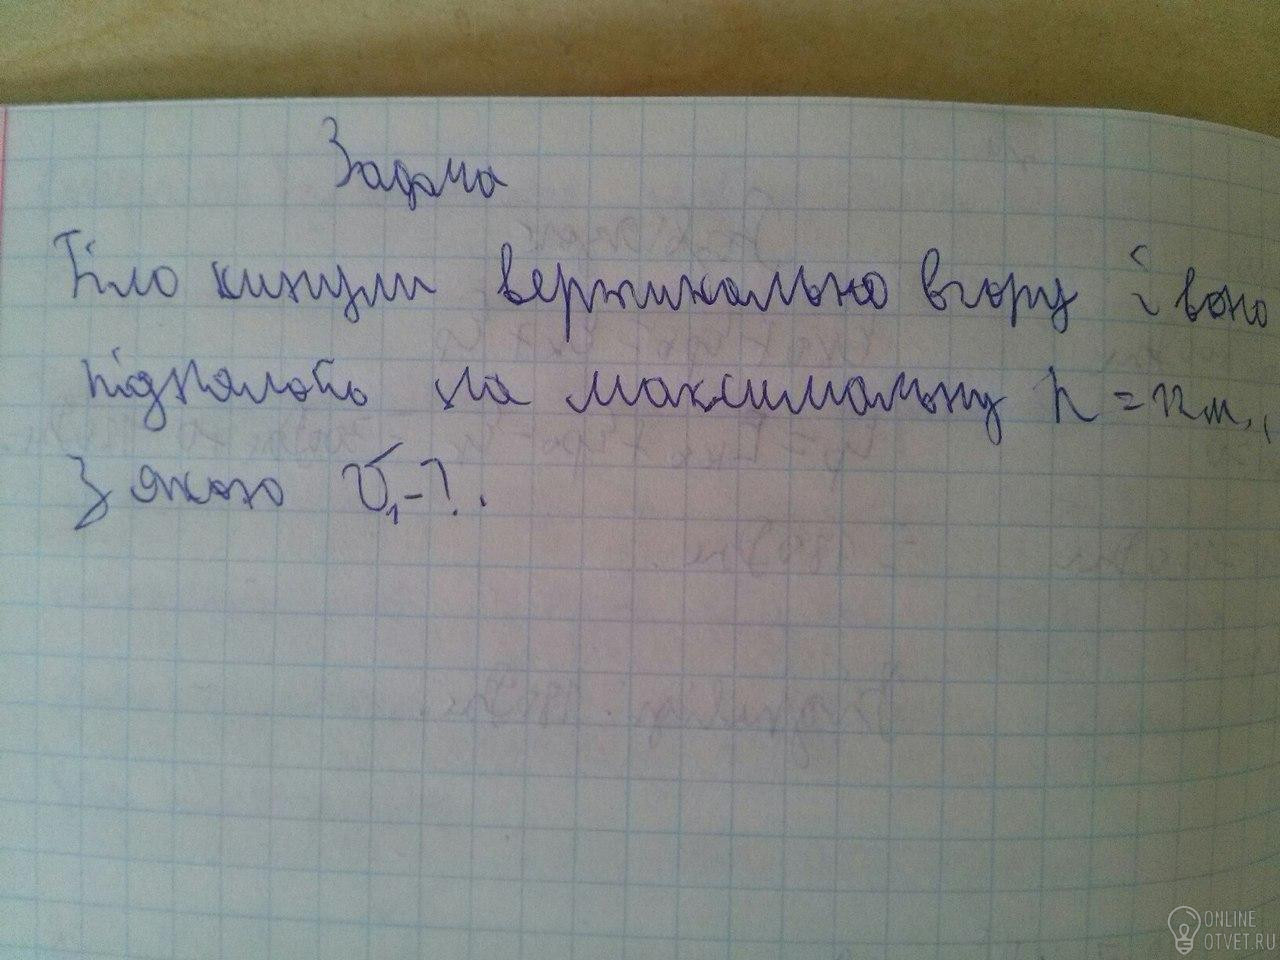 Задача
Тіло кинули вертикально вгору і воно
піднялось на максимальну h = 12 м.,
З якою V₁-?.
ONLINE
OTVET.RU